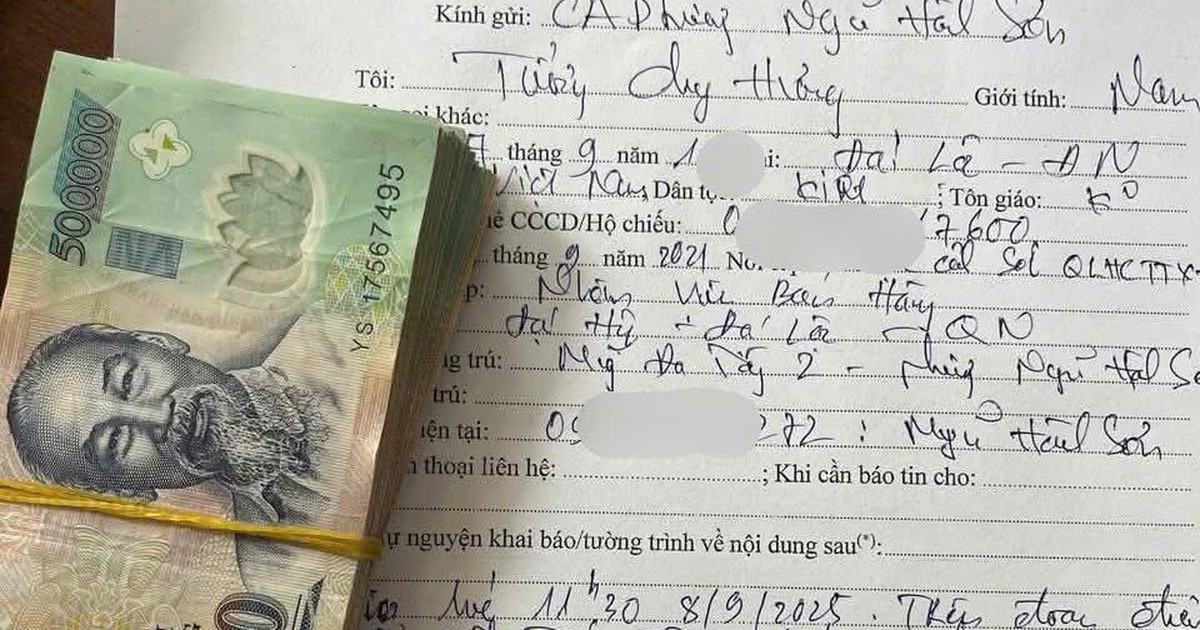 Kính gửi: CA Phường Ngũ Hành Sơn
Tôi: Duy Giới tính: Nam
khác:
7 tháng 9 năm 1 i: Đại La - ĐN
Việt Nam, Dân tộ kinh ; Tôn giáo: k0
CCCD/Hộ chiếu: 0 7600
tháng 9 năm 2021 cục QLHCTTX
p: Nhân viên Bán Hàng
QN
ng trú: Mỹ Đa Tây 2 - phường Ngũ Hành S
trú:
iện tại: 09 272 : Ngũ Hành Sơn
thoại liên hệ: ; Khi cần báo tin cho:
ự nguyện khai báo/tường trình về nội dung sau(*):
lúc 11h30 8/9/2025. Trên đoạn
500000
YS 17567495